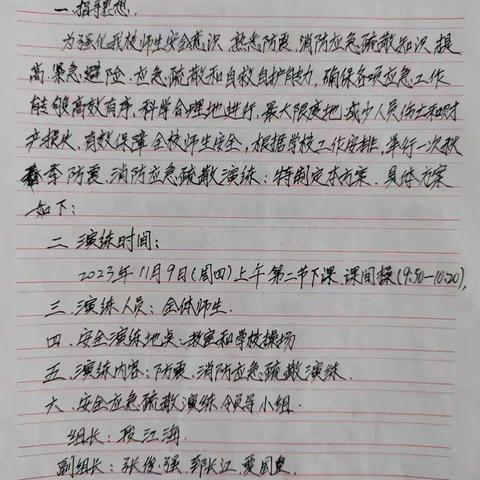 一.指导思想.
为强化我校师生安全意识,熟悉防震.消防应急疏散知识,提
高紧急避险、应急疏散和自救自护能力,确保各项应急工作
能够高效有序,科学合理地进行,最大限度地减少人员伤亡和财
产损失,有效保障全校师生安全,根据学校工作安排,举行一次秋
季防震、消防应急疏散演练;特制定本方案.具体方案
如下:
二.演练时间:
2023年11月9日(周四)上午第二节下课 课间操(9:50-10:20),
三.演练人员:全体师生.
四.安全演练地点:教室和学校操场
五.演练内容:防震.消防应急疏散演练.
六.安全应急疏散演练领导小组.
组长:段江海.
副组长:张俊强.郅长江.